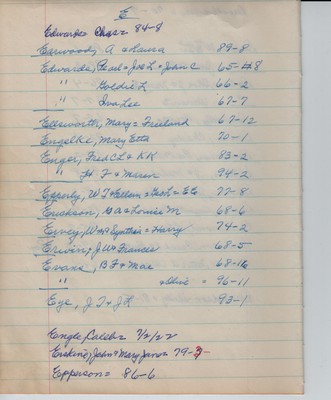 E
Edwards Chas = 84-8
Ellwood, A & Laura 89-8
Edwards, Pearl + Joe L + John C 65-
" Goldie L 66-2
" Iva Lee 67-7
Ellsworth, Mary = Freeland 67-12
Engelke, Mary Etta 70-1
Enger, Fred C L & K K 83-2
" H F & Miren 94-2
Egerly, W T & Ellen = Geo L = Etc 77-8
Erickson, G A & Louise M 68-6
Ervey, Wm & Synthia = Harry 74-2
Erwin, J W & Frances 68-5
Evans, B F & Mae 68-16
" = 96-11
Ege, J T & J L 93-1
Engle, Caleb = 7/2/22
Erskine, John & Mary Jane = 79-3
Epperson = 86-6